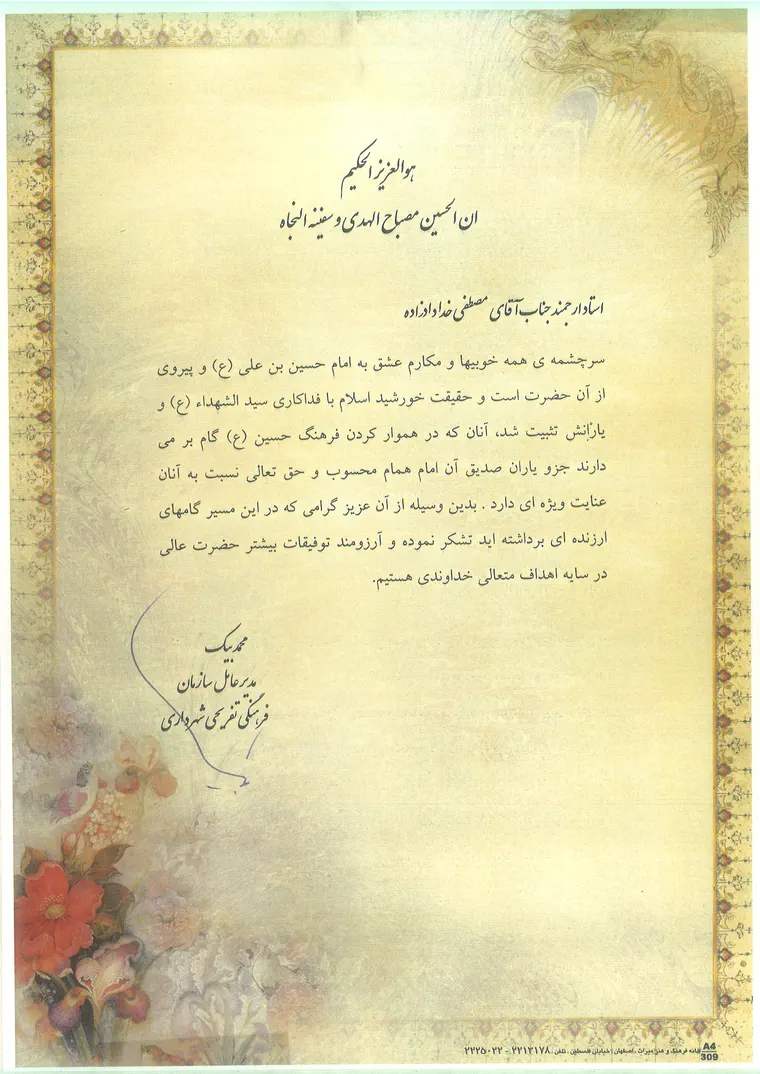 هوالعزیز الحکیم
ان الحسین مصباح الهدی و سفینه النجاه
استاد ارجمند جناب آقای مصطفی خدادادزاده
سرچشمه ی همه خوبیها و مکارم عشق به امام حسین بن علی (ع) و پیروی
از آن حضرت است و حقیقت خورشید اسلام با فداکاری سید الشهداء (ع) و
یارانش تثبیت شد، آنان که در هموار کردن فرهنگ حسین (ع) گام بر می
دارند جزو یاران صدیق آن امام همام محسوب و حق تعالی نسبت به آنان
عنایت ویژه ای دارد . بدین وسیله از آن عزیز گرامی که در این مسیر گامهای
ارزنده ای برداشته اید تشکر نموده و آرزومند توفیقات بیشتر حضرت عالی
در سایه اهداف متعالی خداوندی هستیم.
محمد بیک
مدیر عامل سازمان
فرهنگی تفریحی شهرداری
خانه فرهنگ و هنر میراث . اصفهان : خیابان فلسطین . تلفن : ۲۲۱۳۱۷۸ - ۲۲۲۵۰۲۲
A4
309